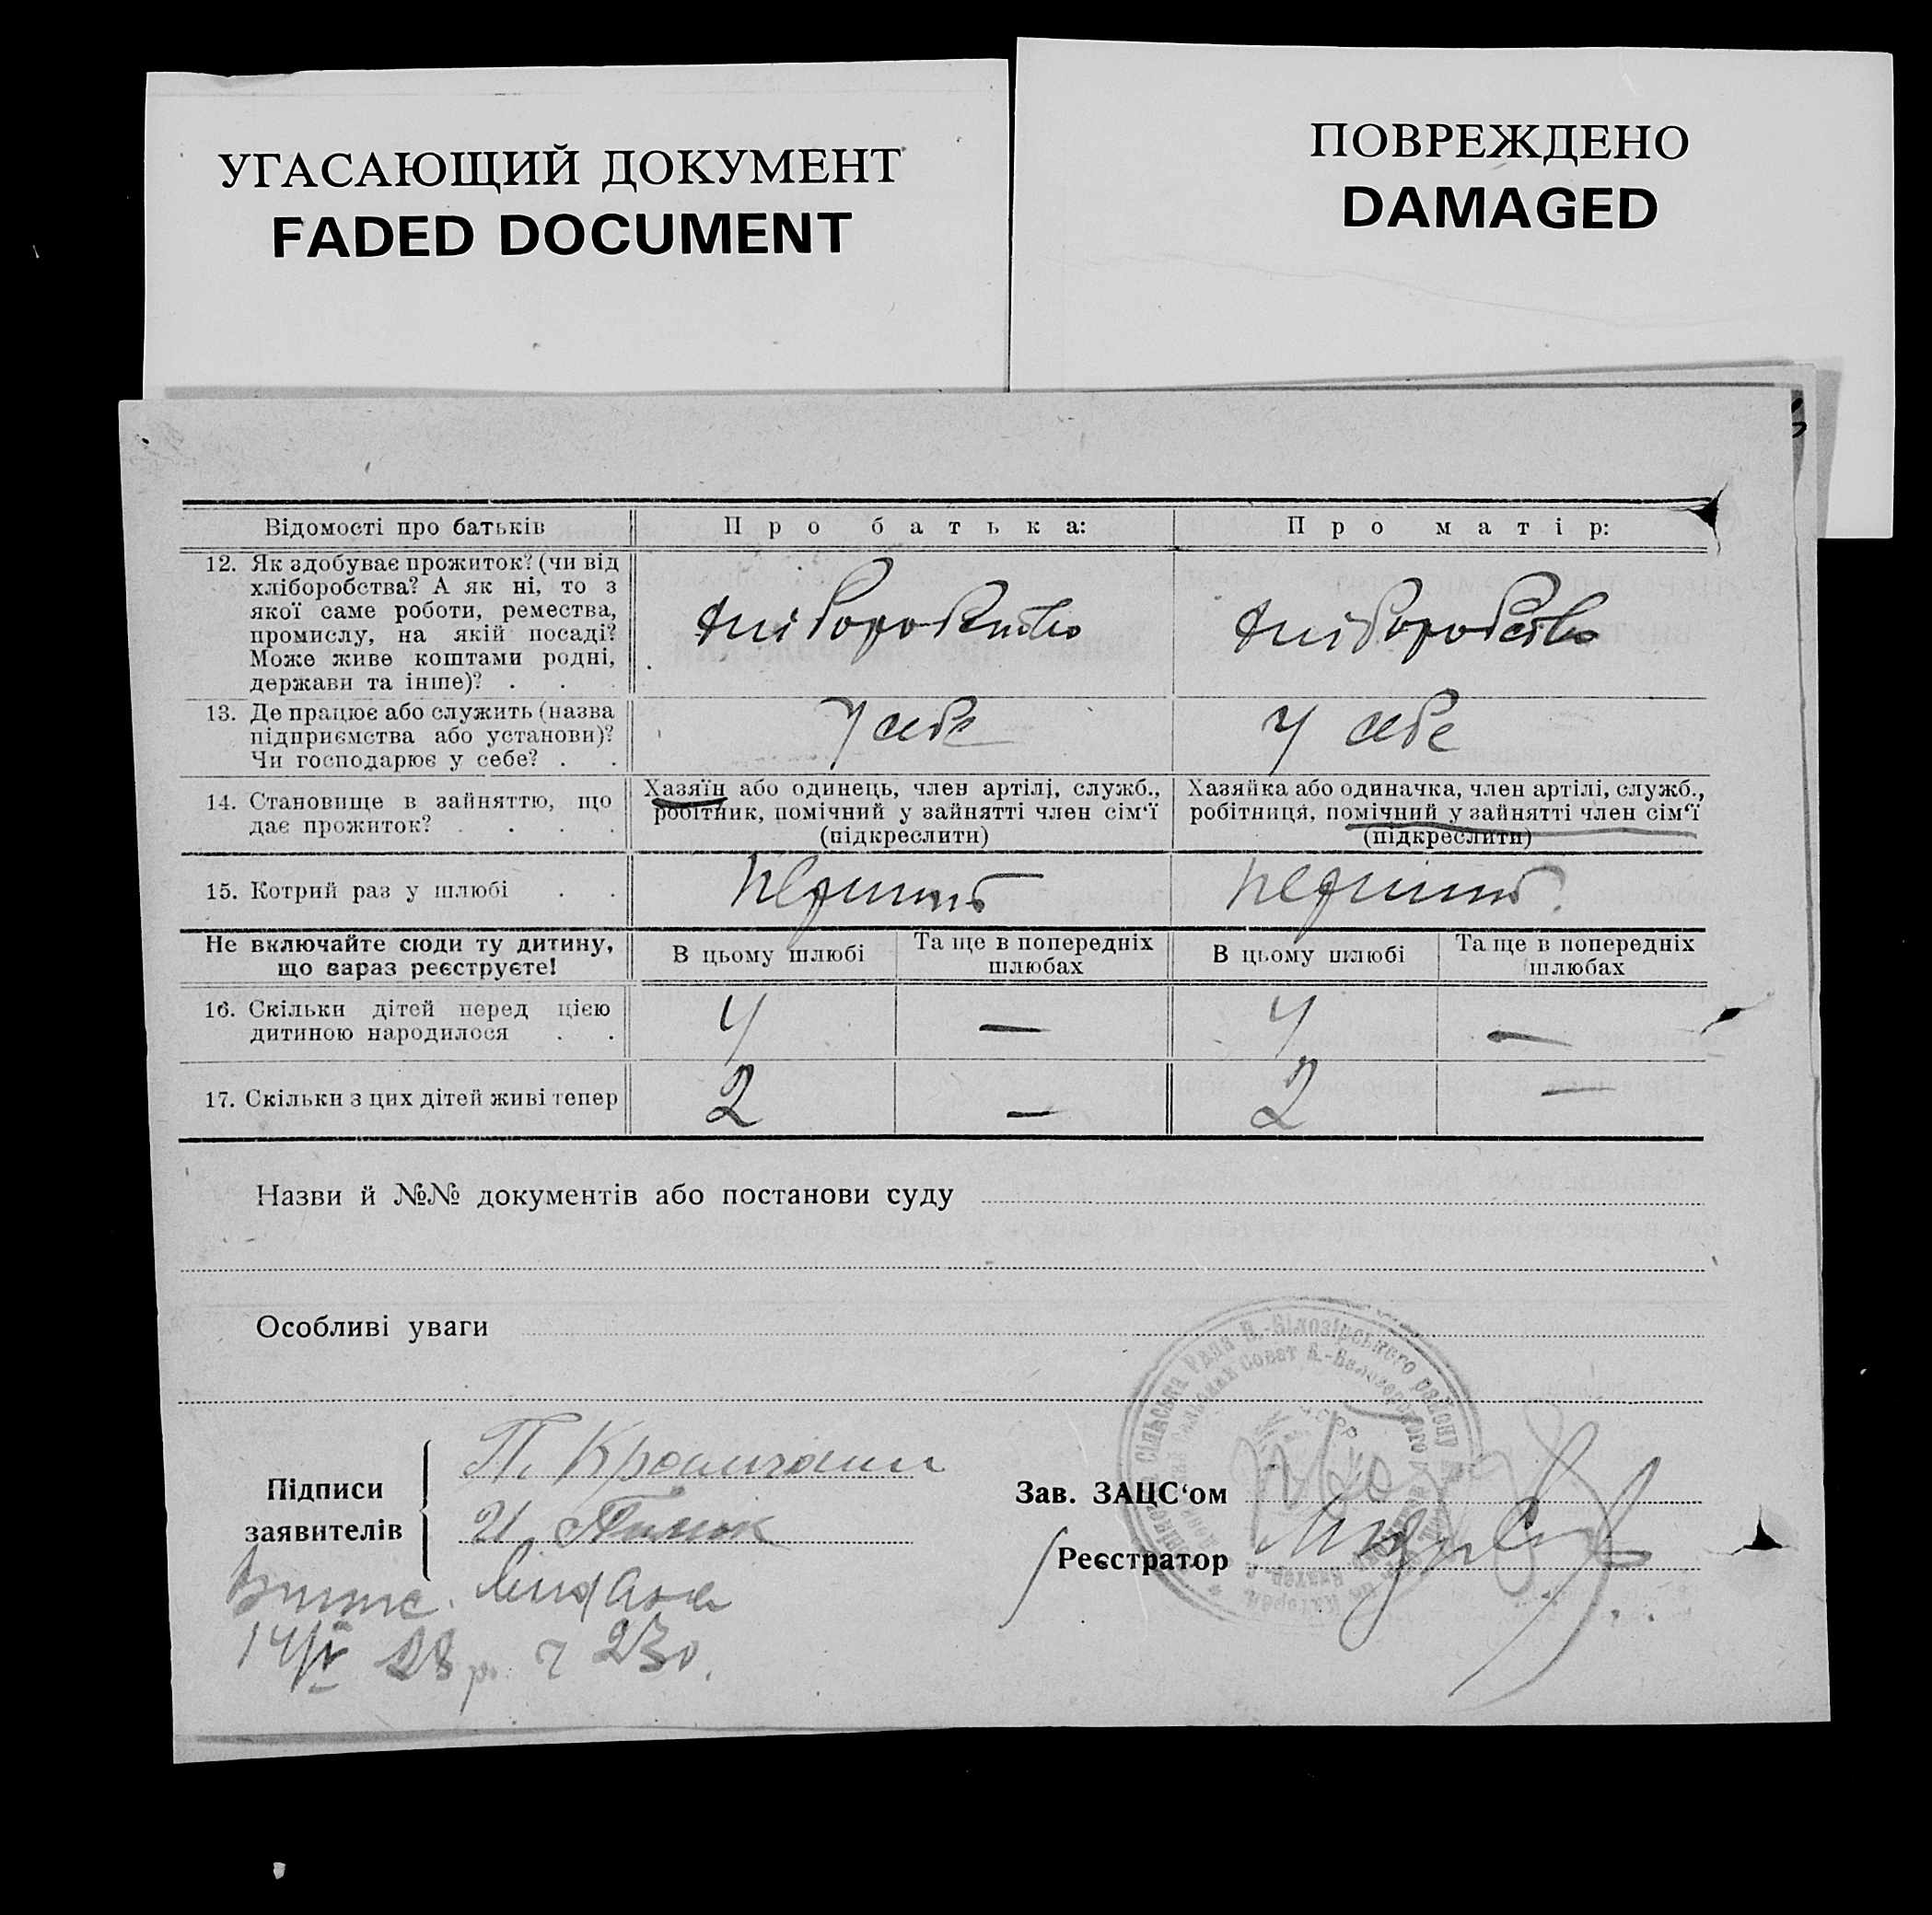 УГАСАЮЩИЙ ДОКУМЕНТ
FADED DOCUMENT
ПОВРЕЖДЕНО
DAMAGED
Відомості про батьків
Про батька:
Про матір:
12. Як здобуває прожиток? (чи від
хліборобства? А як ні, то з
якої саме роботи, ремества,
промислу, на якій посаді?
Може живе коштами родні,
держави та інше)? . . .
хліборобство
хліборобство
13. Де працює або служить (назва
підприємства або установи)?
Чи господарює у себе? . .
У себе
У себе
14. Становище в зайняттю, що
дає прожиток? . . . .
Хазяїн або одинець, член артілі, служб.,
робітник, помічний у зайнятті член сім‘ї
(підкреслити)
Хазяйка або одиначка, член артілі, служб.,
робітниця, помічний у зайнятті член сім‘ї
(підкреслити)
15. Котрий раз у шлюбі . .
Не включайте сюди ту дитину,
що зараз реєструєте!
В цьому шлюбі
Та ще в попередніх
шлюбах
В цьому шлюбі
Та ще в попередніх
шлюбах
16. Скільки дітей перед цією
дитиною народилося . .
4
—
4
—
17. Скільки з цих дітей живі тепер
2
—
2
—
Назви й №№ документів або постанови суду
Особливі уваги
Підписи
заявителів
П.
Зав. ЗАЦС‘ом
Реєстратор
Сільська Рада В.-Білозірського району
28 р. 230.